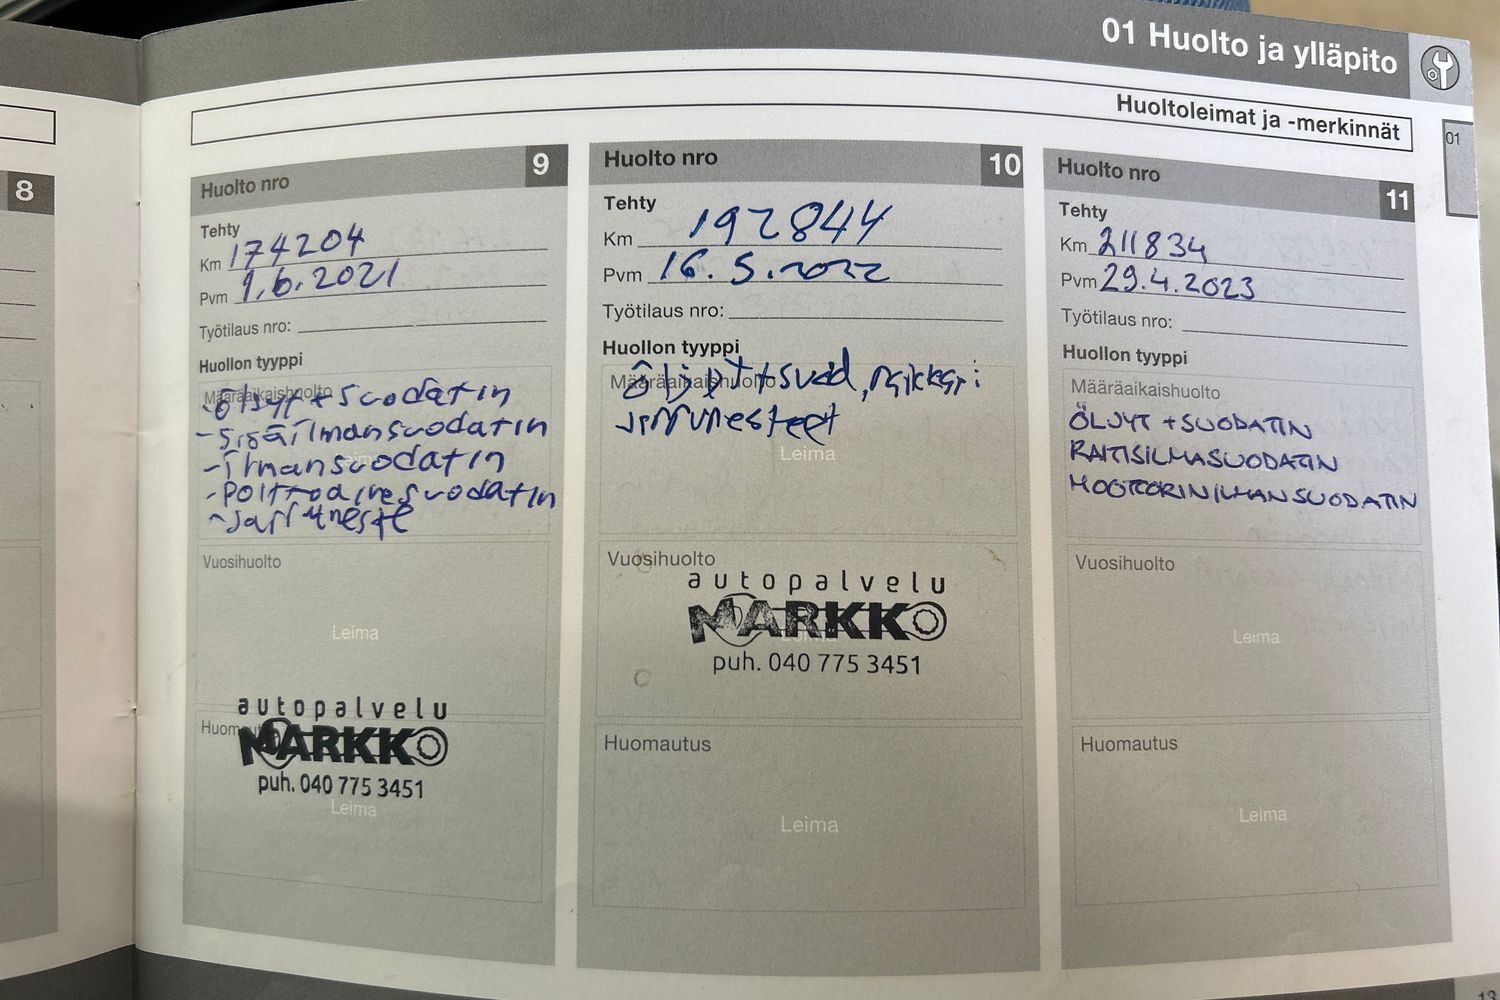 01 Huolto ja ylläpito
Huoltoleimat ja -merkinnät
01
8
Huolto nro 9
Tehty
Km 174204
Pvm 1.6.2021
Työtilaus nro:
Huollon tyyppi
Määräaikaishuolto
-öljyt + suodatin
-sisäilmansuodatin
-ilmansuodatin
-polttoainesuodatin
-jarruneste
Vuosihuolto
Leima
autopalvelu
Huomautus
MARKKO
puh. 040 775 3451
Leima
Huolto nro 10
Tehty
Km 192844
Pvm 16.5.2022
Työtilaus nro:
Huollon tyyppi
Määräaikaishuolto
öljyt + suod,
jarrunesteet
Leima
Vuosihuolto
autopalvelu
MARKKO
puh. 040 775 3451
Huomautus
Leima
Huolto nro 11
Tehty
Km 211834
Pvm 29.4.2023
Työtilaus nro:
Huollon tyyppi
Määräaikaishuolto
ÖLJYT + SUODATIN
RAITISILMASUODATIN
MOOTTORINILMANSUODATIN
Vuosihuolto
Leima
Huomautus
Leima